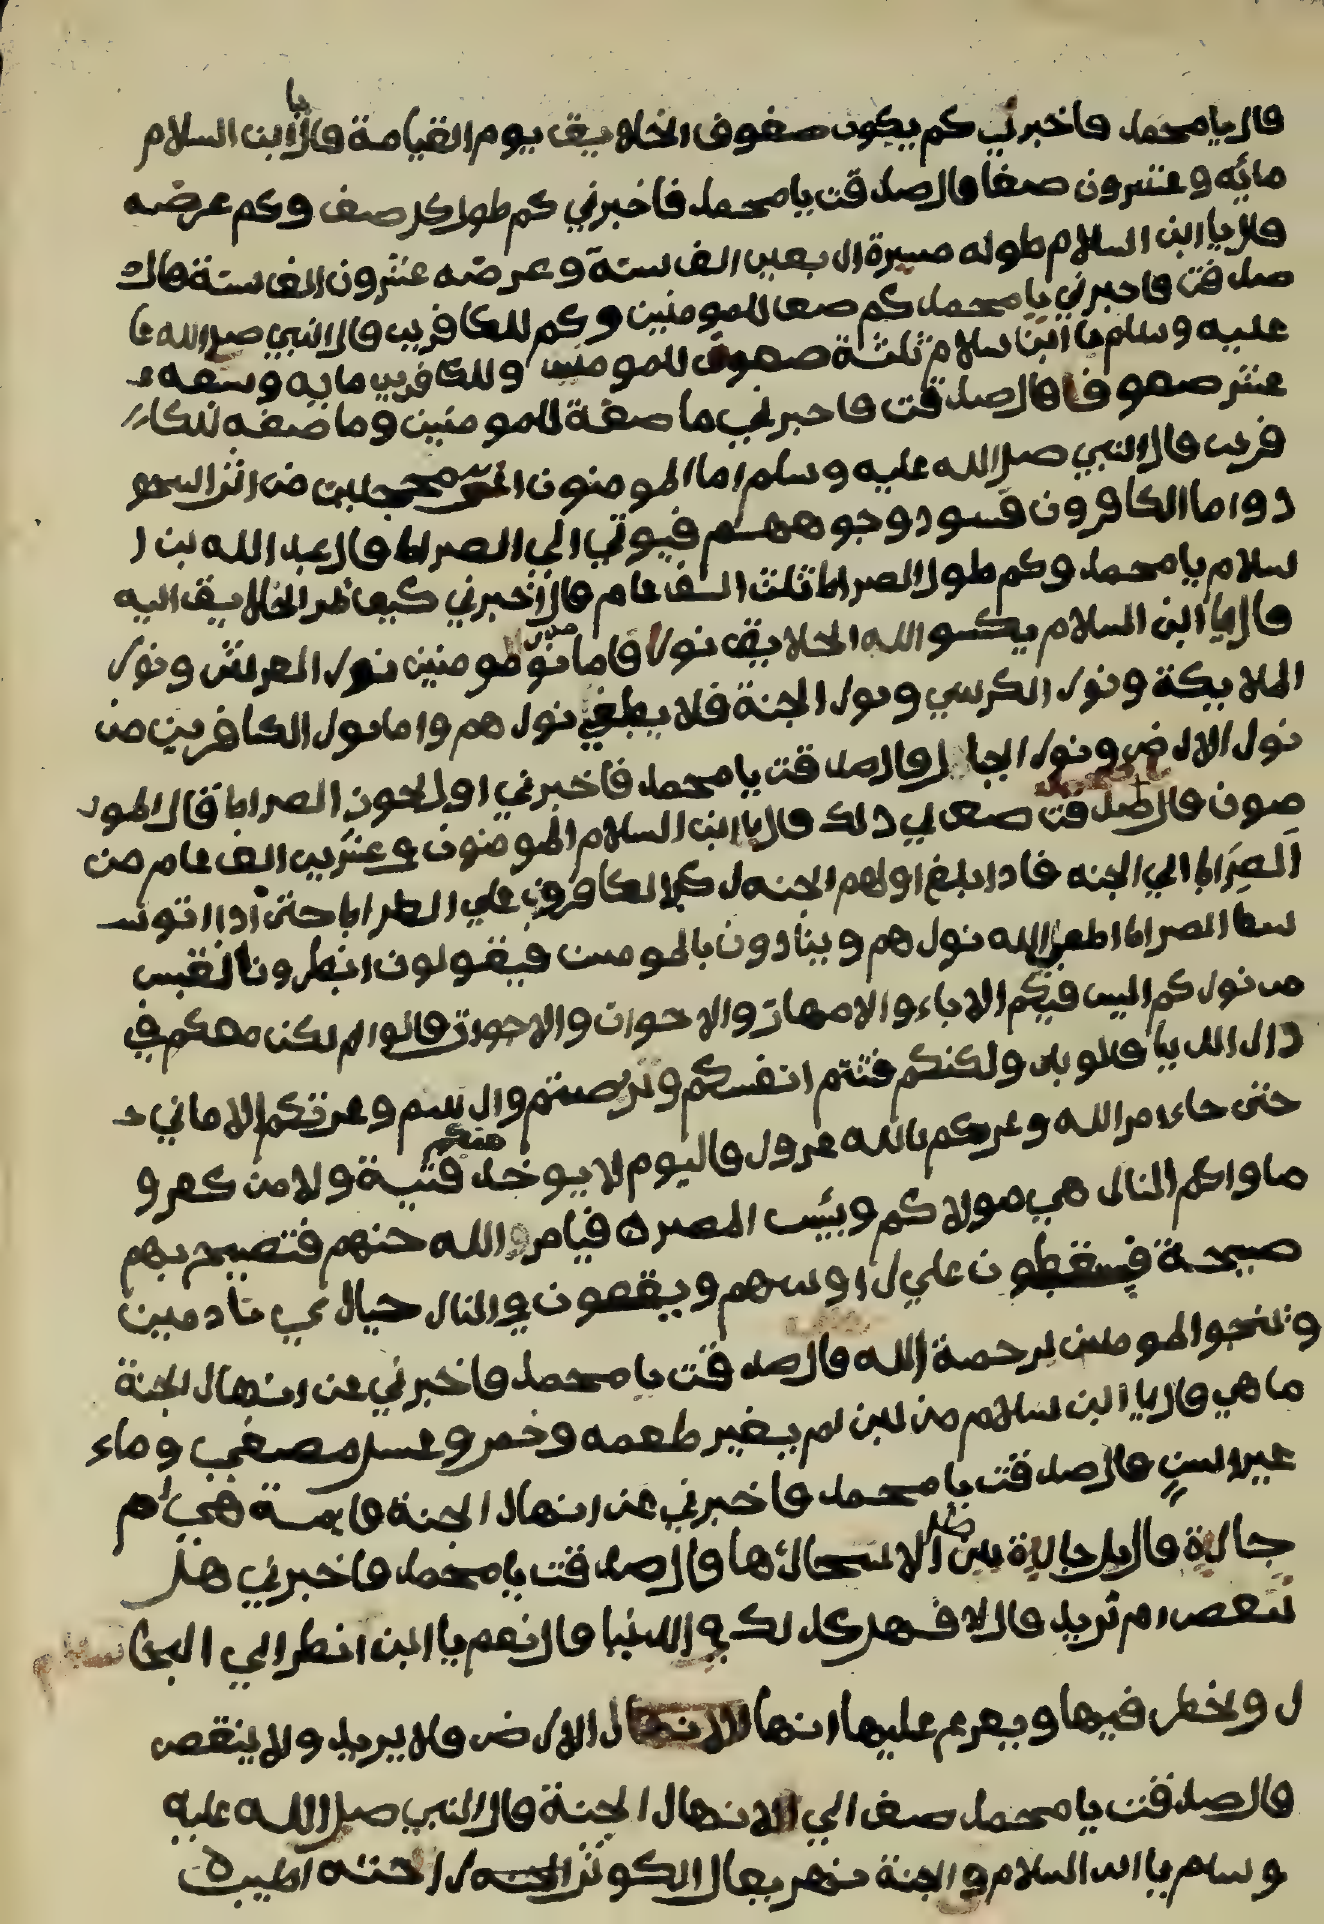 قال يا محمد فاخبرني كم يكون صفوف الخلايق يوم القيامة قال يا ابن السلام
مائه وعشرون صفا قال صدقت يا محمد فاخبرني كم طول كل صف وكم عرضه
قال يا ابن السلام طوله مسيرة اربعين الف سنة وعرضه عشرون الف سنة قال
صدقت فاخبرني يا محمد كم صفا للمومنين وكم للكافرين قال النبي صلى الله عا
عليه وسلم يا ابن سلام ثلثة صفوف للمومنين وللكافرين مايه وسبعه
عشر صفوفا قال صدقت فاخبرني ما صفة للمومنين وما صفه للكا
فرين قال النبي صلى الله عليه وسلم اما المومنون محجلين من اثر السجو
د واما الكافرون فسود وجوههم فيوتي الى الصراط قال عبد الله بن ا
سلام يا محمد وكم طول الصراط ثلث الف عام قال اخبرني كيف الخلايق اليه
قال يا ابن السلام يكسو الله الخلايق نورا فاما نور مومنين نور العرش ونور
الملايكة ونور الكرسي ونور الجنة فلا يطغي نورهم واما نور الكافرين من
نور الارض ونور الجبال قال صدقت يا محمد فاخبرني اول يجوز الصراط قال المو
منون قال صدقت صف لي ذلك قال يا ابن السلام المومنون عشرين الف عام من
الصراط الي الجنه فاذا بلغ اولهم الجنه الكافرون علي الطراط حتى اذا اتوسـ
سطا الصراط اطفي الله نورهم وينادون بالمومنين فيقولون انظرونا نقتبس
من نوركم اليس فيكم الاباء والامهات والاخوان والاخوات قالوا الم نكن معكم في
دار الدنيا قالو بلى ولكنكم فتنتم انفسكم وتربصتم وارتبتم وغرتكم الاماني
حتى جاء امر الله وغركم بالله غرور فاليوم لا يوخذ منكم فتية ولا من كفرو
ماواكم النار هي مولاكم وبئس المصير فيامر الله جنهم فتصيح بهم
صيحة فسقطون علي راوسهم ويقعون في النار حياري نادمين
وتنجوا المومنين برحمة الله قال صدقت يا محمد فاخبرني عن انهار الجنة
ما هي قال يا ابن سلام من لبن لم يغير طعمه وخمر وعسل مصفي وماء
غير اسن قال صدقت يا محمد فاخبرني عن انهار الجنة قايمة هي ام
جارية قال بل جارية بين اشجارها قال صدقت يا محمد فاخبرني هل
تنقص ام تزيد قال لا فهل كذلك في الدنيا قال نعم يا ابن انظر الي البحا
ر فيها عليها انهار الارض ولا يزيد ولا ينقص
قال صدقت يا محمد صف الي الانهار الجنة قال النبي صلى الله عليه
وسلم يا ابن السلام في الجنة نهر يقال الكوثر